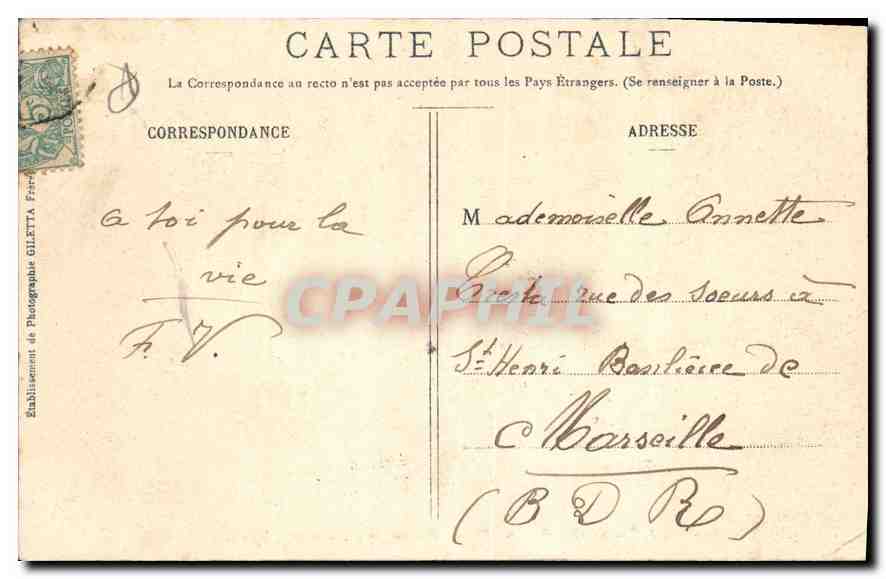 CARTE POSTALE
La Correspondance au recto n'est pas acceptée par tous les Pays Étrangers. (Se renseigner à la Poste.)
CORRESPONDANCE
a toi pour la
vie
F. V.
ADRESSE
Mademoiselle Annette
Cresta rue des soeurs à
St Henri Banlieue de
Marseille
(B D R)
Établissement de Photographie GILETTA Frères
CPAPHIL
5